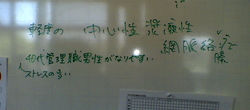 軽度の 中心性漿液性
網脈絡膜で
40代管理職男性がなりやすい
ストレスの多い